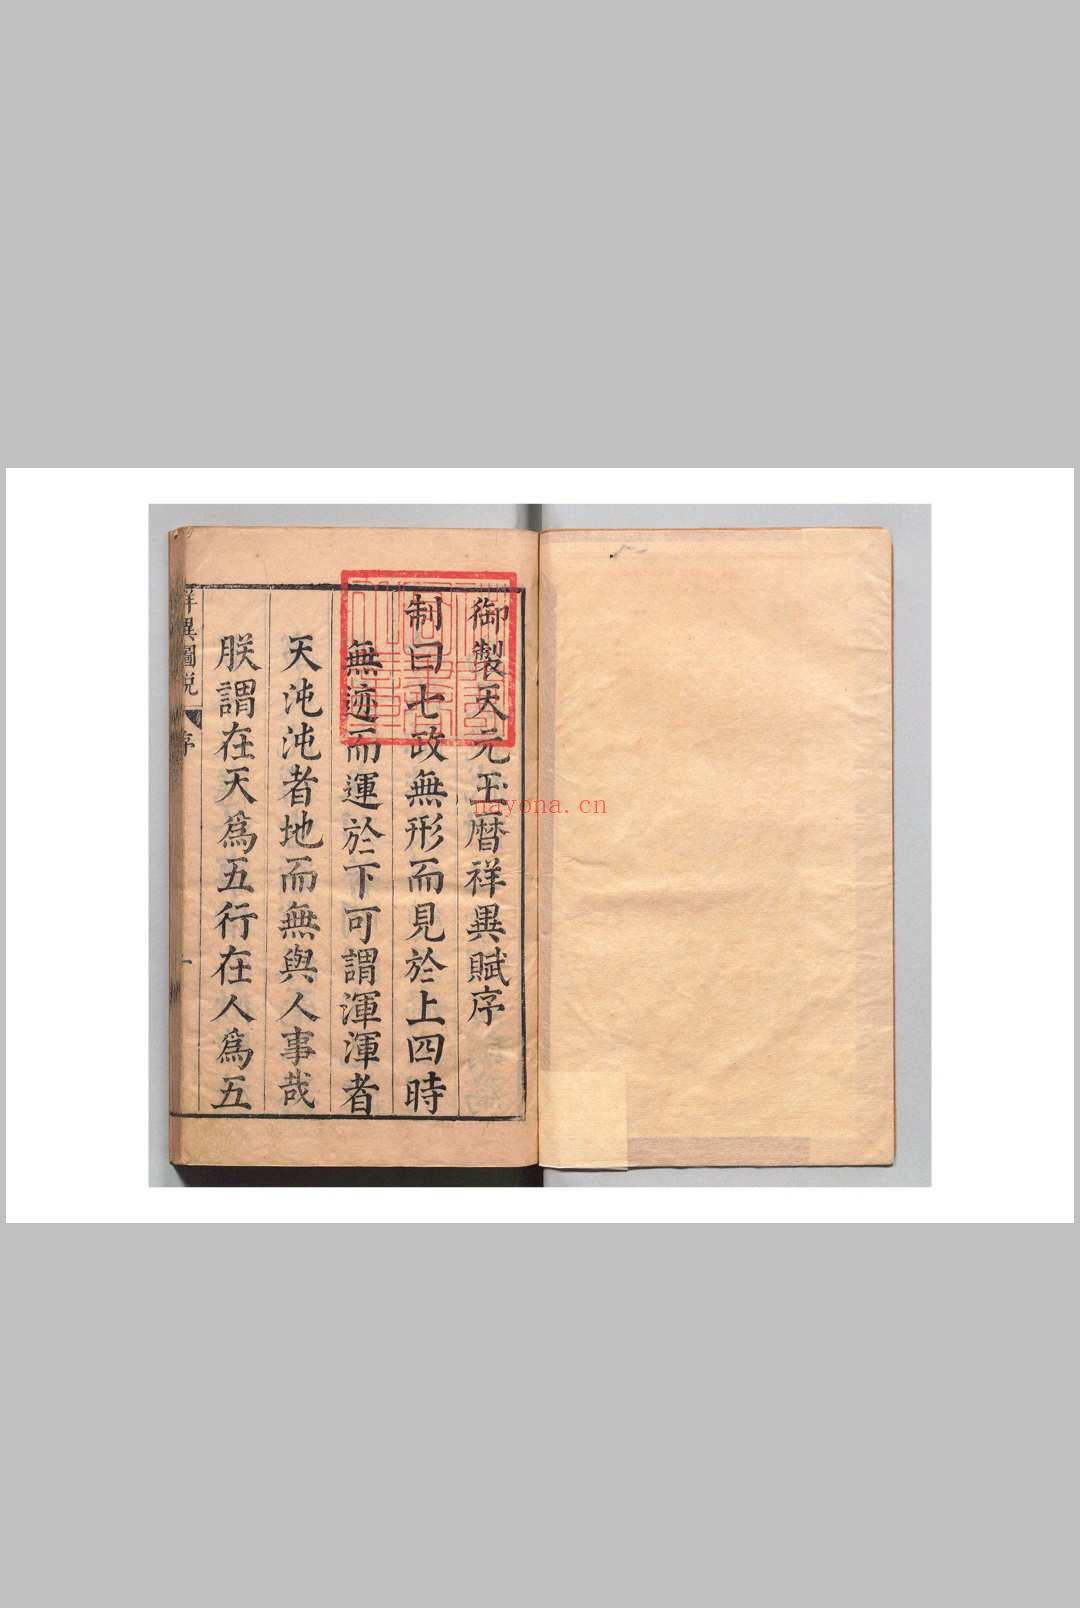 御製天元玉曆祥異賦序
制曰七政無形而見於上四時
無迹而運於下可謂渾渾者
天沌沌者地而無與人事哉
朕謂在天為五行在人為五
祥異圖說
序
一
nayona.cn